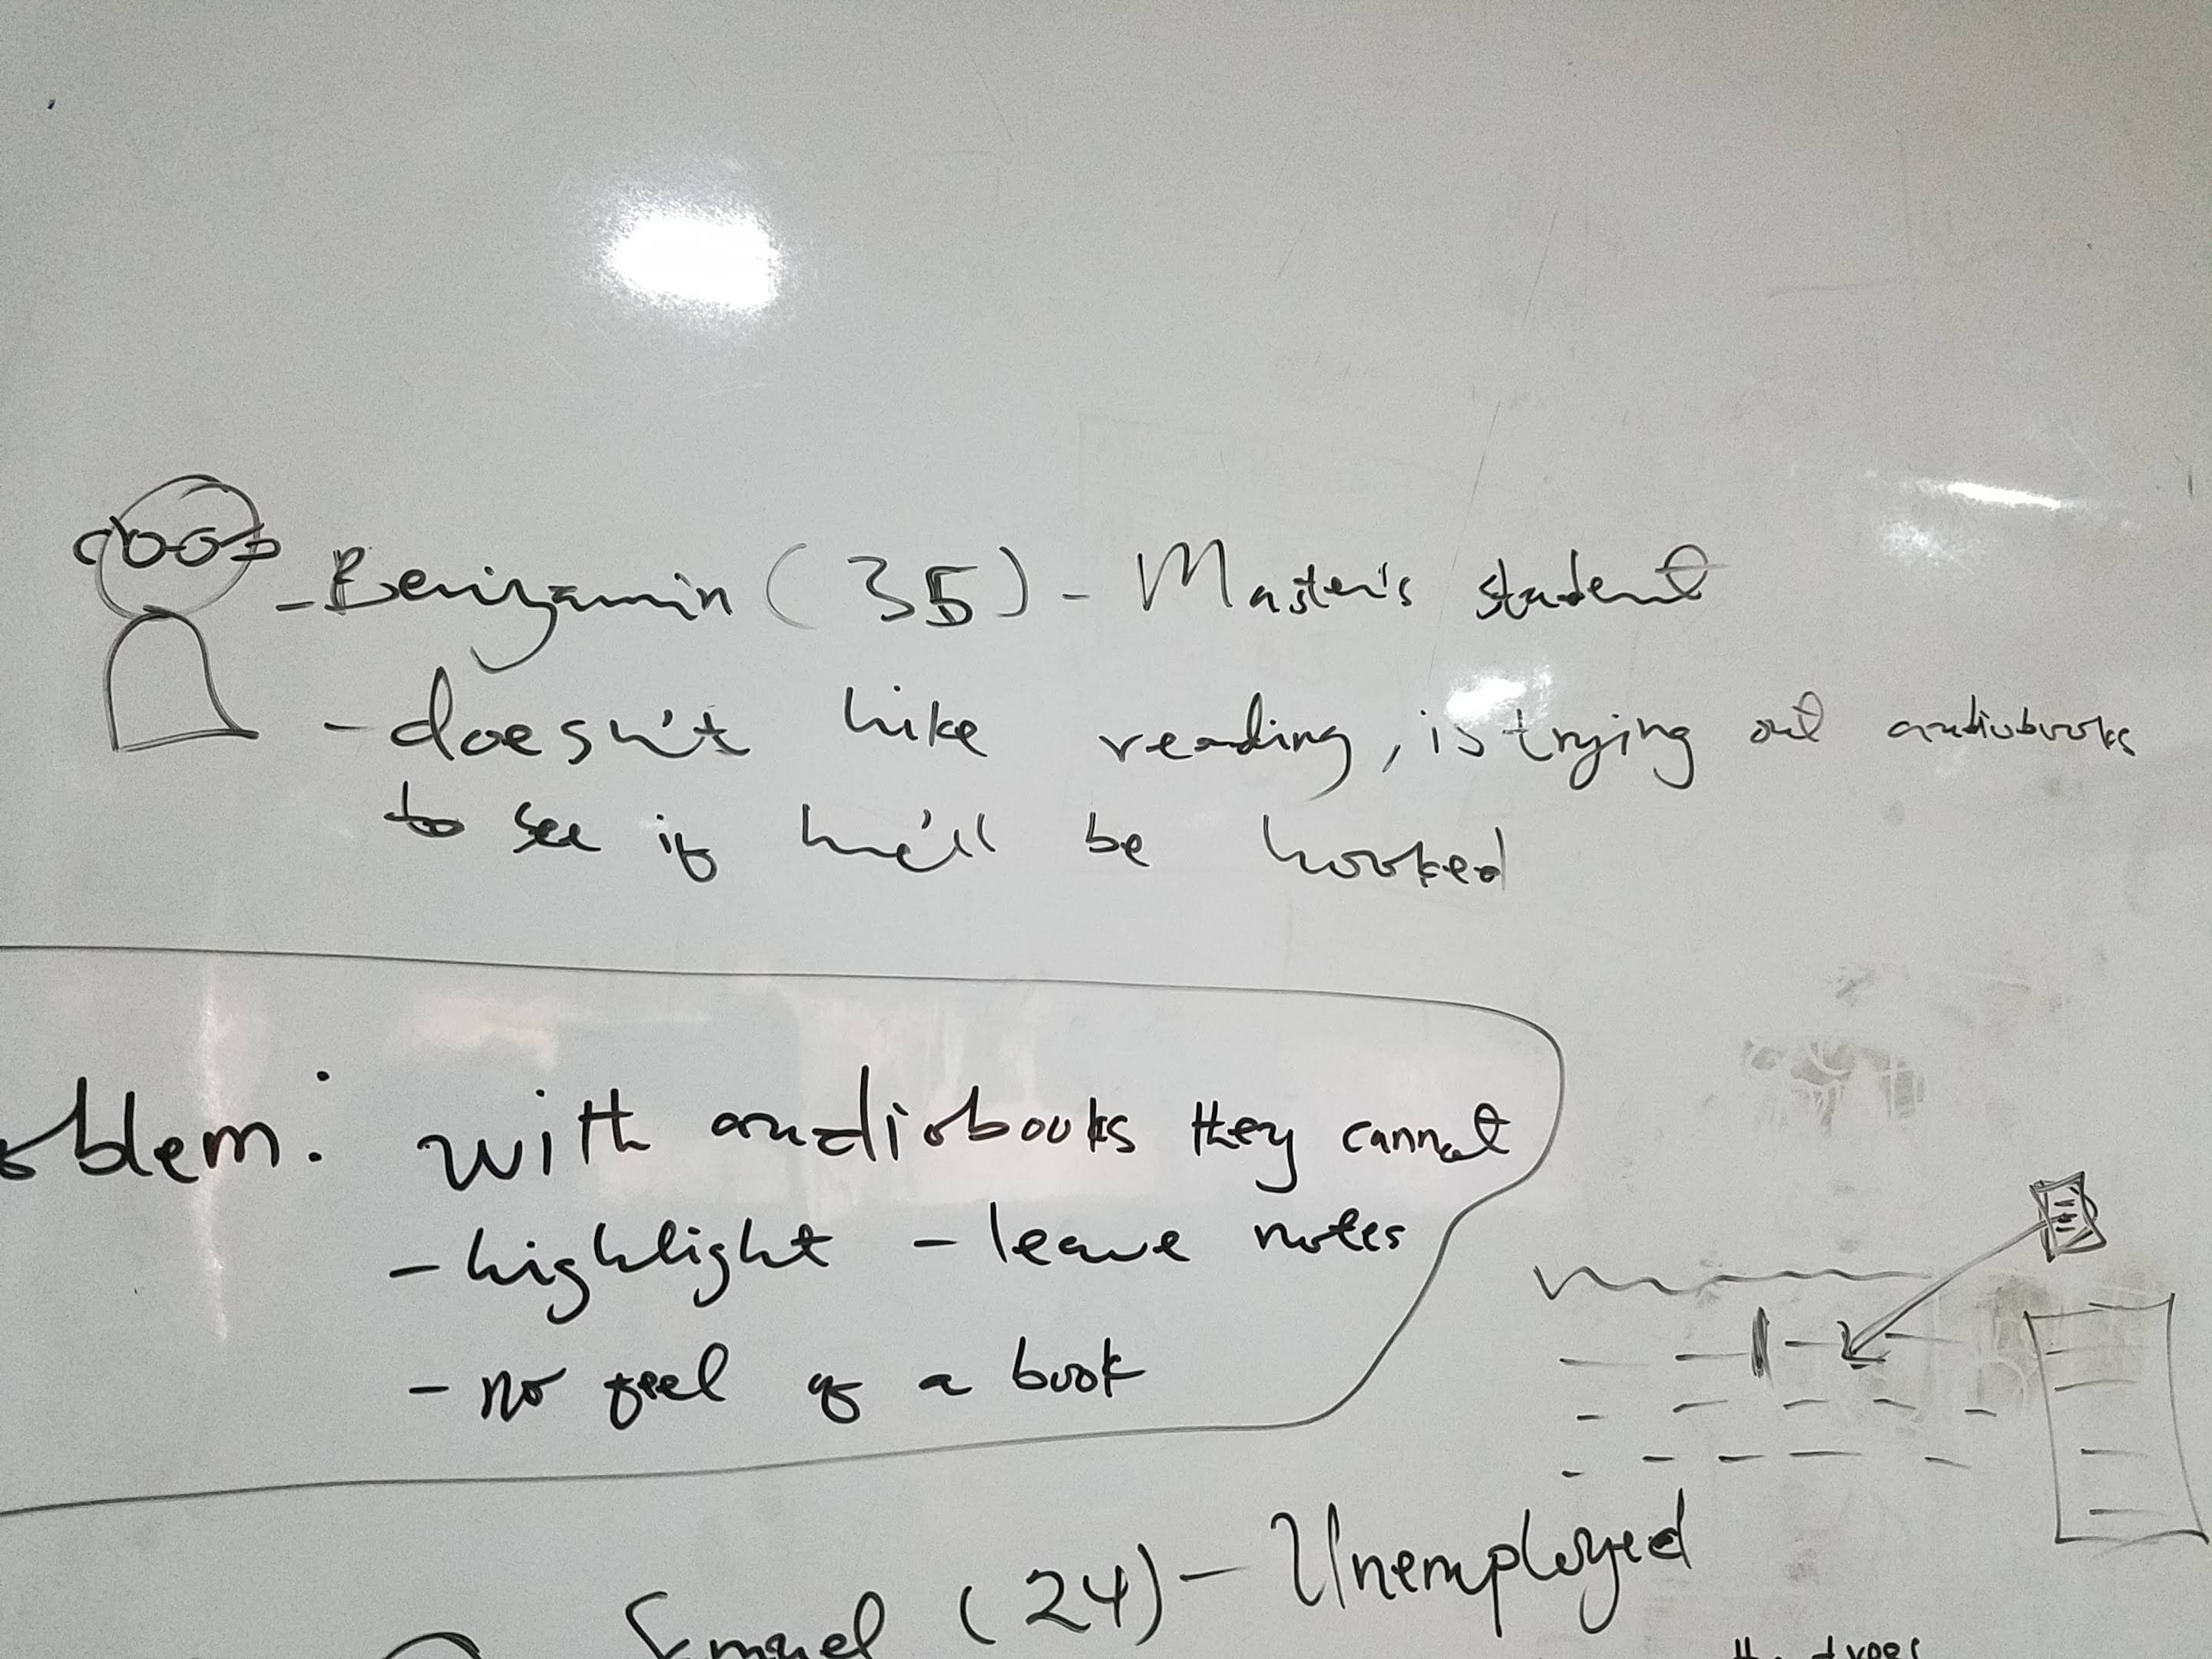 - Benjamin (35) - Master's student
- doesn't like reading, is trying out audiobooks
to see if he'll be hooked
oblem: with audiobooks they cannot
- highlight - leave notes
- no feel of a book
(24) - Unemployed